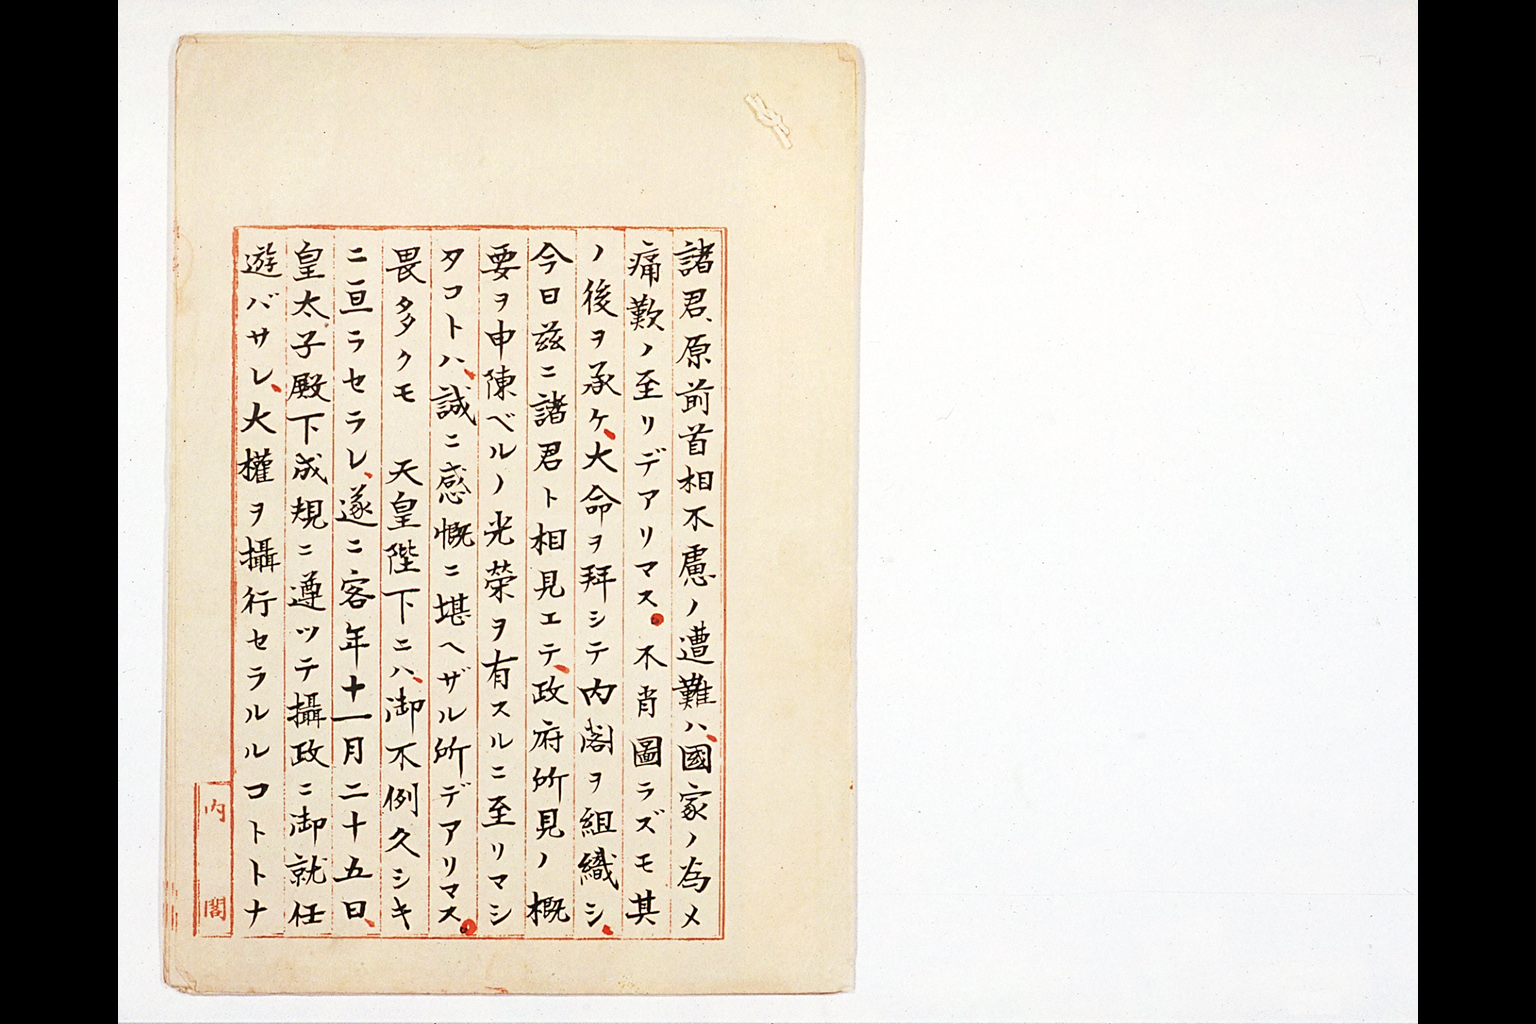 諸君、原前首相不慮ノ遭難ハ、國家ノ為メ
痛歎ノ至リデアリマス。不肖圖ラズモ其
ノ後ヲ承ケ、大命ヲ拜シテ内閣ヲ組織シ、
今日玆ニ諸君ト相見エテ、政府所見ノ概
要ヲ申陳ベルノ光榮ヲ有スルニ至リマシ
タコトハ、誠ニ感慨ニ堪ヘザル所デアリマス。
畏多クモ　天皇陛下ニハ、御不例久シキ
ニ亘ラセラレ、遂ニ客年十一月二十五日、
皇太子殿下成規ニ遵ツテ攝政ニ御就任
遊バサレ、大權ヲ攝行セラルルコトトナ
内閣